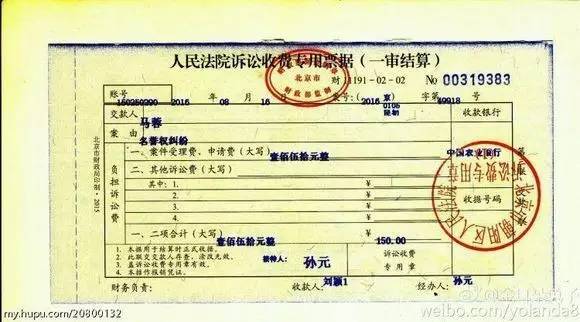 人民法院诉讼收费专用票据(一审结算)
北京市
财政部监制
财 1191-02-02 No 00319383
账号 150250990 2016 年 08 月 16 日 票号:(2016 京 0105 字第 49918 号
交款人 马蓉 收款银行
案由 名誉权纠纷
一、案件受理费、申请费(大写) 壹佰伍拾元整 中国农业银行
负担诉讼费
二、其他诉讼费(大写) ¥
其中:1. ¥
2. ¥
3. ¥
4. ¥
收据号码
一、二项合计(大写) 壹佰伍拾元整 ¥ 150.00
1. 本据用于结算时正式收据。
2. 此联交交款人存查,涂改无效。
3. 盖诉讼收费专用章有效。
4. 本据作报销凭证。
接待人: 孙元
诉讼收费
专用章
财务负责: 收款人: 刘颖1 经办人: 孙元
北京市财政局印制·2015
北京市朝阳区人民法院
诉讼费专用章
my.hupu.com/20800132
weibo.com/yolanda8